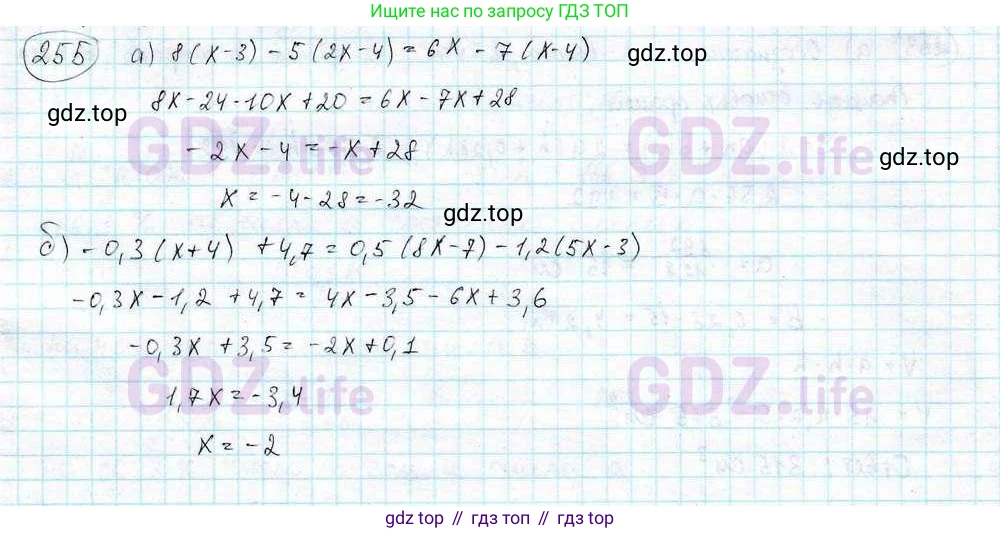 Ищите нас по запросу ГДЗ ТОП
255 а) 8(x-3) - 5(2x-4) = 6x - 7(x-4)
gdz.top
8x - 24 - 10x + 20 = 6x - 7x + 28
gdz.top
GDZ.life
GDZ.life
- 2x - 4 = -x + 28
gdz.top
x = -4 - 28 = -32
gdz.top
б) - 0,3(x+4) + 4,7 = 0,5(8x-7) - 1,2(5x-3)
-0,3x - 1,2 + 4,7 = 4x - 3,5 - 6x + 3,6
-0,3x + 3,5 = -2x + 0,1
GDZ.life
GDZ.life
1,7x = -3,4
x = -2
gdz top // гдз топ // gdz top